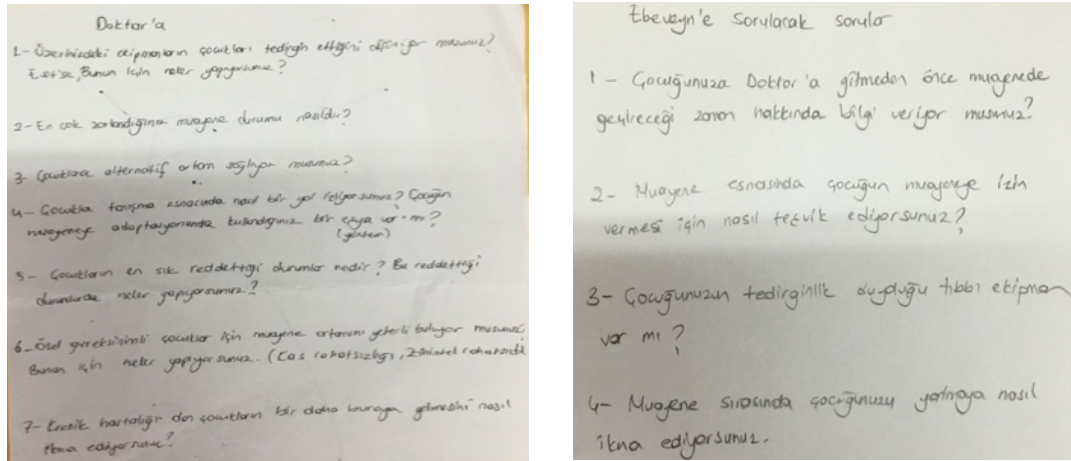 Doktor'a
1- Üzerinizdeki ekipmanların çocukları tedirgin ettiğini düşünüyor musunuz?
Ettiyse, Bunun için neler yapıyorsunuz?
2- En çok zorlandığınız muayene durumu nasıldır?
3- Çocuklara alternatif ortam sağlıyor musunuz?
4- Çocukla tanışma esnasında nasıl bir yol izliyorsunuz? Çocuğun
muayeneye adaptasyonunda kullandığınız bir eşya var-mı?
(yöntem)
5- Çocukların en sık reddettiği durumlar nedir? Bu reddettiği
durumlarda neler yapıyorsunuz?
6- Özel gereksinimli çocuklar için muayene ortamını yeterli buluyor musunuz?
Bunun için neler yapıyorsunuz. (Kas rahatsızlığı, Zihinsel rahatsızlık
7- Kronik hastalığı olan çocukların bir daha buraya gelmesini nasıl
ikna ediyorsunuz?
Ebeveyn'e sorulacak sorular
1- Çocuğunuza Doktor'a gitmeden önce muayenede
geçireceği zaman hakkında bilgi veriyor musunuz?
2- Muayene esnasında çocuğun muayeneye izin
vermesi için nasıl teşvik ediyorsunuz?
3- Çocuğunuzun tedirginlik duyduğu tıbbi ekipman
var mı?
4- Muayene sırasında çocuğunuzu yatmaya nasıl
ikna ediyorsunuz.